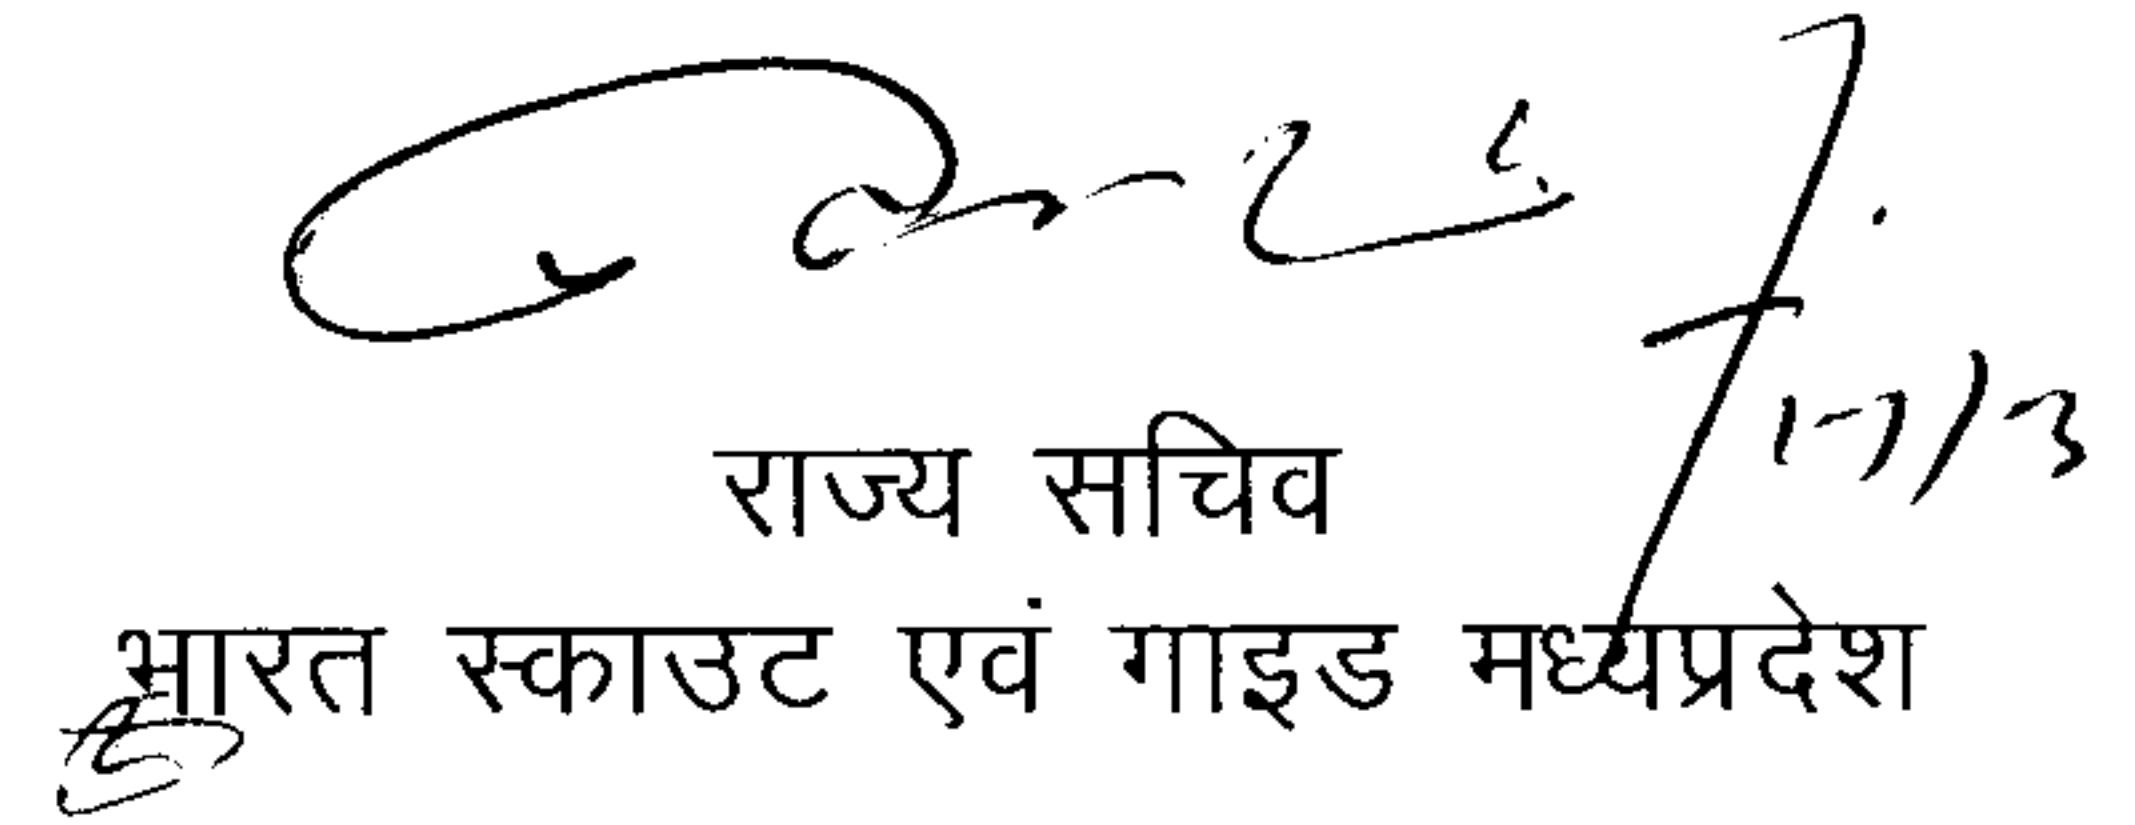 17/3
राज्य सचिव
भारत स्काउट एवं गाइड मध्यप्रदेश